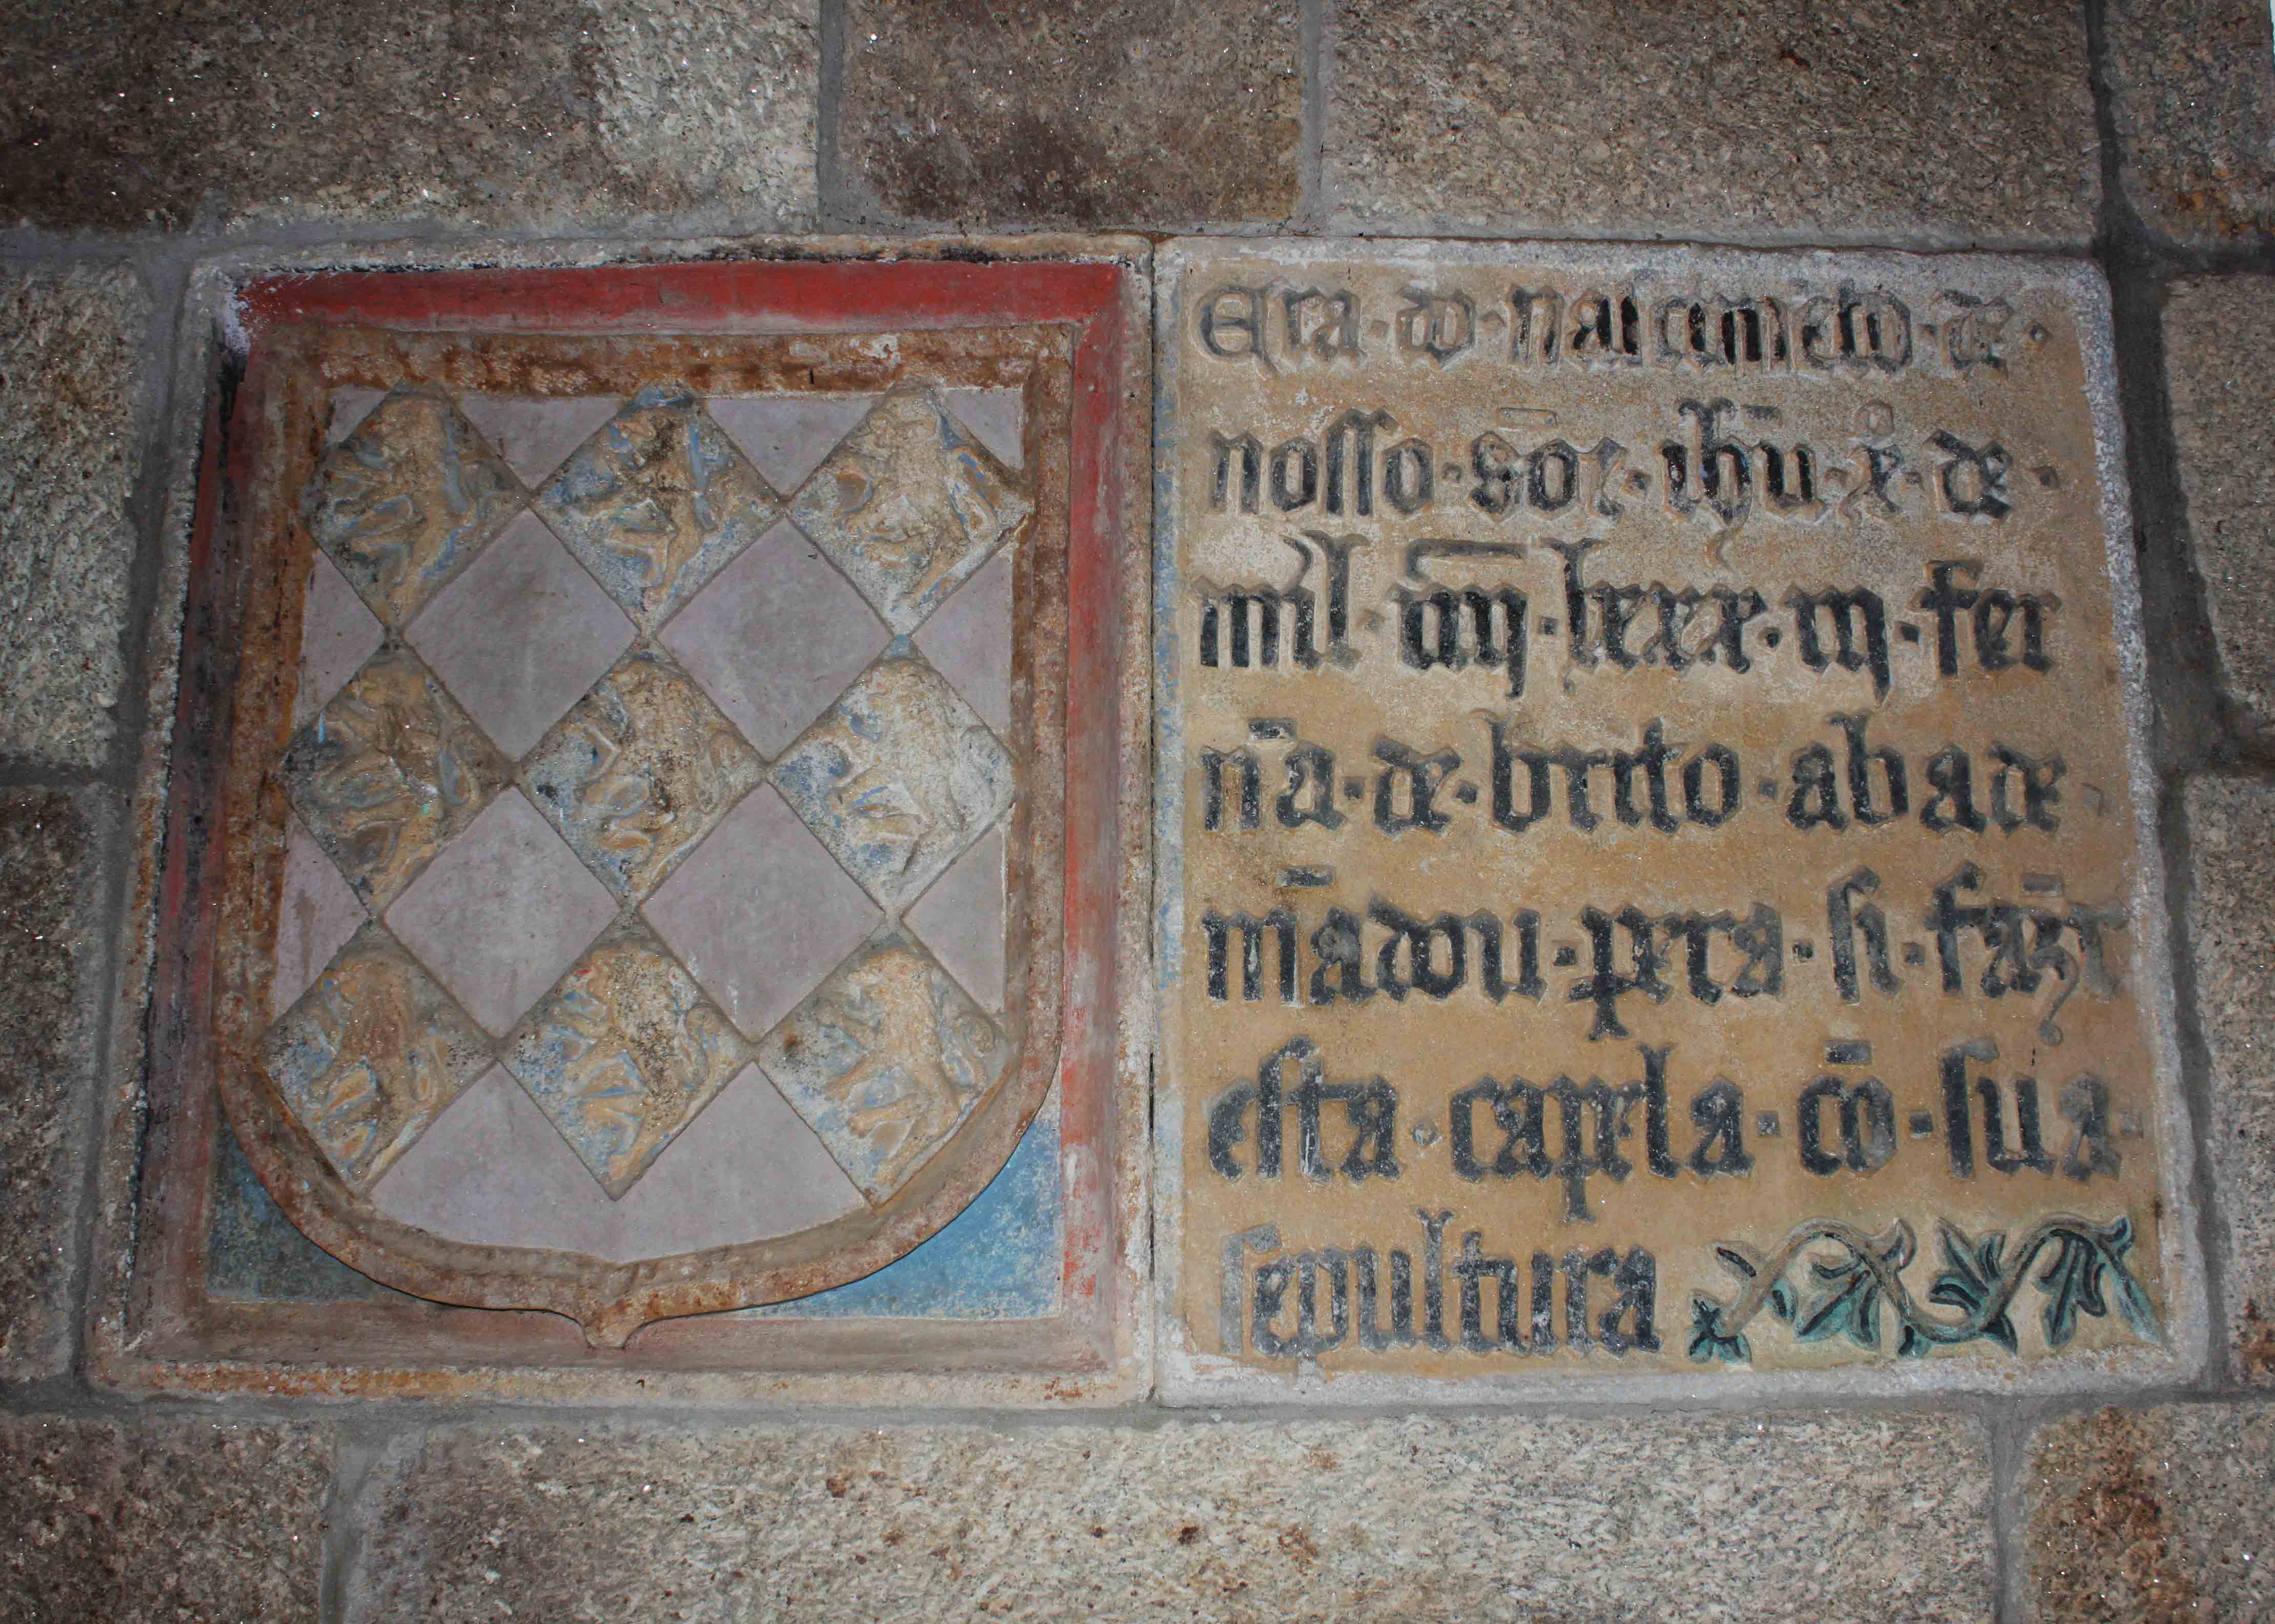 Era · do · naicimēto · de ·
nosso · sōor · ihū · xº · de ·
mil · iiij · lxxx · iij · fer
nāa · de · brito · abade ·
māadou · pera · si · fāzr
esta · capela · cō · sua ·
sepultura